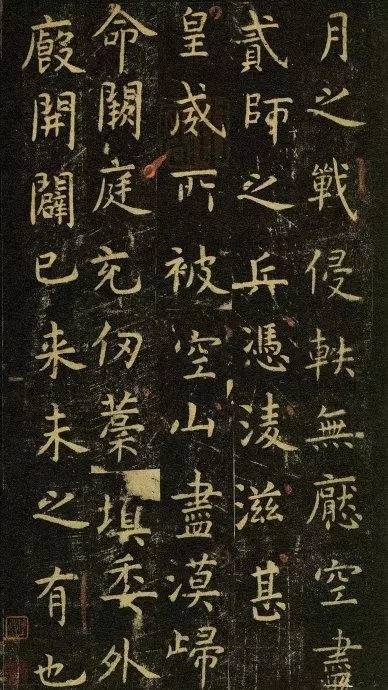 月之戰侵軼無厭空盡
貳師之兵憑淩滋甚
皇威所被空山盡漠歸
命闕庭充仞藁填委外
廏開闢已来未之有也